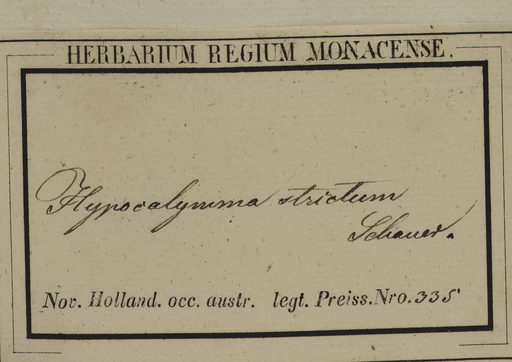 HERBARIUM REGIUM MONACENSE.
Hypocalymma strictum
Schauer.
Nov. Holland. occ. austr. legt. Preiss. Nro. 335